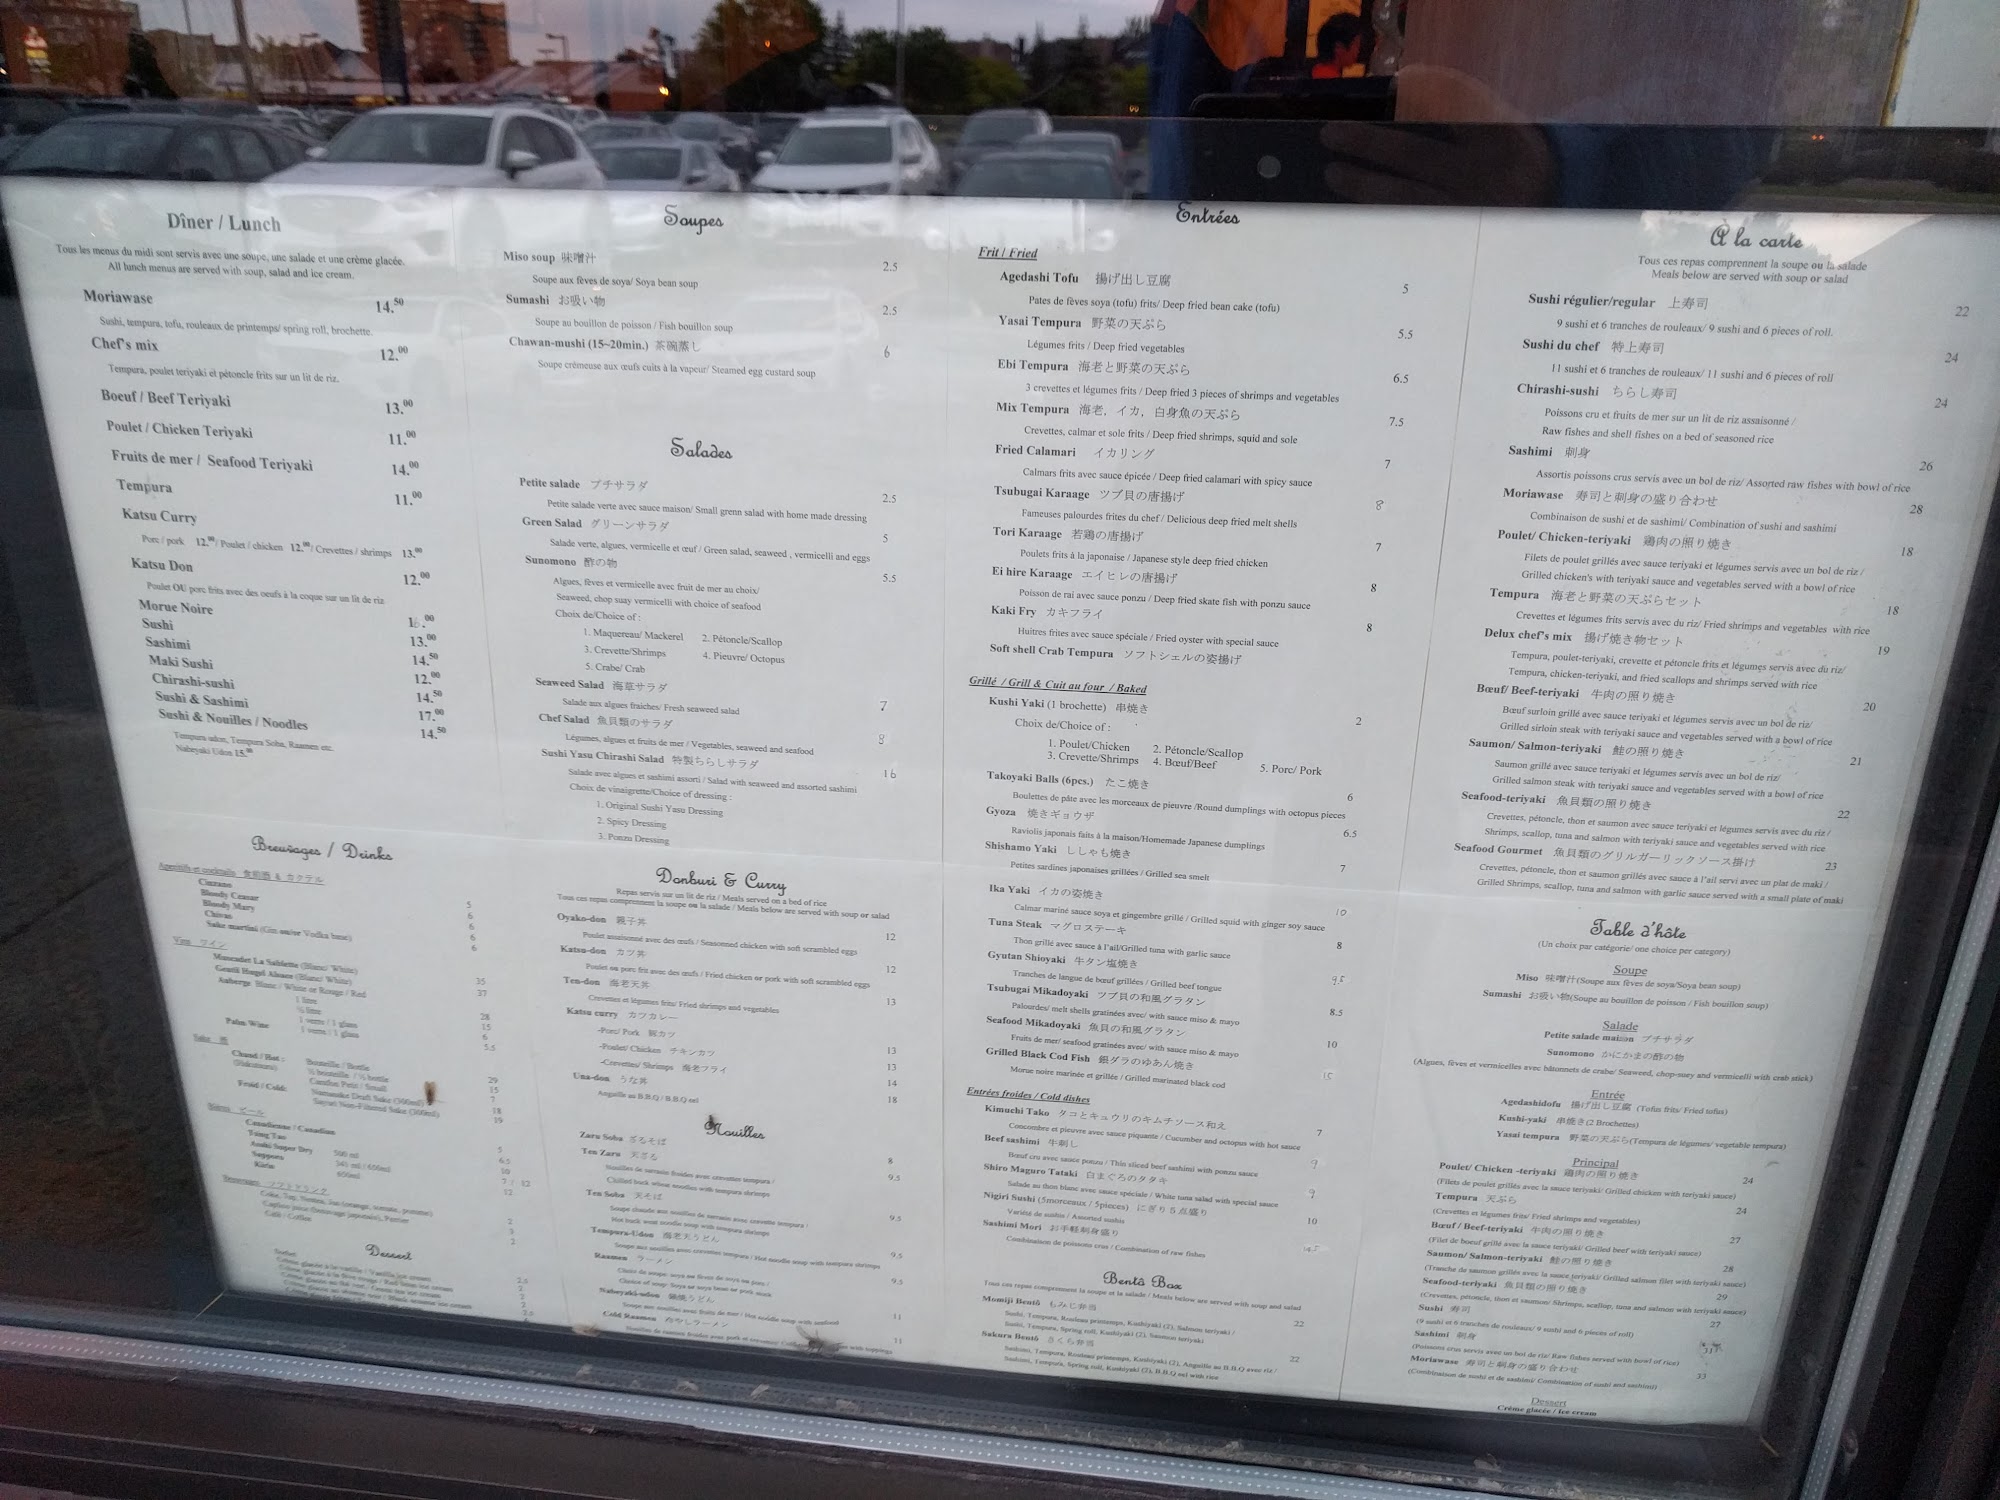 Dîner / Lunch
Tous les menus du midi sont servis avec une soupe, une salade et une crème glacée.
All lunch menus are served with soup, salad and ice cream.
Moriawase 14.50
Sushi, tempura, tofu, rouleaux de printemps/ spring roll, brochette.
Chef's mix 12.00
Tempura, poulet teriyaki et pétoncle frits sur un lit de riz.
Boeuf / Beef Teriyaki 13.00
Poulet / Chicken Teriyaki 11.00
Fruits de mer / Seafood Teriyaki 14.00
Tempura 11.00
Katsu Curry
Porc / pork 12.00/ Poulet / chicken 12.00/ Crevettes / shrimps 13.00
Katsu Don 12.00
Poulet OU porc frits avec des oeufs à la coque sur un lit de riz
Morue Noire
Sushi 13.00
Sashimi 14.50
Maki Sushi 12.00
Chirashi-sushi 14.50
Sushi & Sashimi 17.00
Sushi & Nouilles / Noodles 14.50
Tempura udon, Tempura Soba, Raamen etc.
Nabeyaki Udon 15.00
Breuvages / Drinks
Apéritifs et cocktails 食前酒 & カクテル
Cinzano 5
Bloody Ceasar 6
Bloody Mary 6
Chivas 6
Sake martini (Gin ou/or Vodka base) 6
Vins ワイン
Muscadet La Sablette (Blanc/ White) 35
Gentil Hugel Alsace (Blanc/ White) 37
Auberge Blanc / White or Rouge / Red
1 litre 28
½ litre 15
1 verre / 1 glass 6
Palm Wine 1 verre / 1 glass 5.5
Sake 酒
Chaud / Hot : Bouteille / Bottle 29
(Hakutsuru) ½ bouteille / ½ bottle 15
Carafon Petit / Small 7
Froid / Cold: Namasake Draft Sake (300ml) 18
Sayuri Non-Filtered Sake (300ml) 19
Bières ビール
Canadienne / Canadian 5
Tsing Tao 6.5
Asahi Super Dry 500 ml 10
Sapporo 341 ml / 650ml 7 / 12
Kirin 650ml 12
Breuvages ソフトドリンク
Café / Coffee 2
Dessert
Crème glacée à la vanille / Vanilla ice cream
Soupes
Miso soup 味噌汁 2.5
Soupe aux fèves de soya/ Soya bean soup
Sumashi お吸い物 2.5
Soupe au bouillon de poisson / Fish bouillon soup
Chawan-mushi (15~20min.) 茶碗蒸し 6
Soupe crémeuse aux œufs cuits à la vapeur/ Steamed egg custard soup
Salades
Petite salade プチサラダ 2.5
Petite salade verte avec sauce maison/ Small grenn salad with home made dressing
Green Salad グリーンサラダ 5
Salade verte, algues, vermicelle et œuf / Green salad, seaweed , vermicelli and eggs
Sunomono 酢の物 5.5
Algues, fèves et vermicelle avec fruit de mer au choix/
Seaweed, chop suay vermicelli with choice of seafood
Choix de/Choice of :
1. Maquereau/ Mackerel 2. Pétoncle/Scallop
3. Crevette/Shrimps 4. Pieuvre/ Octopus
5. Crabe/ Crab
Seaweed Salad 海草サラダ 7
Salade aux algues fraiches/ Fresh seaweed salad
Chef Salad 魚貝類のサラダ 8
Légumes, algues et fruits de mer / Vegetables, seaweed and seafood
Sushi Yasu Chirashi Salad 特製ちらしサラダ 16
Salade avec algues et sashimi assorti / Salad with seaweed and assorted sashimi
Choix de vinaigrette/Choice of dressing :
1. Original Sushi Yasu Dressing
2. Spicy Dressing
3. Ponzu Dressing
Donburi & Curry
Repas servis sur un lit de riz / Meals served on a bed of rice
Tous ces repas comprennent la soupe ou la salade / Meals below are served with soup or salad
Oyako-don 親子丼 12
Poulet assaisonné avec des œufs / Seasoned chicken with soft scrambled eggs
Katsu-don カツ丼 12
Poulet ou porc frit avec des œufs / Fried chicken or pork with soft scrambled eggs
Ten-don 海老天丼 13
Crevettes et légumes frits/ Fried shrimps and vegetables
Katsu curry カツカレー
-Porc/ Pork 豚カツ 13
-Poulet/ Chicken チキンカツ 13
-Crevettes/ Shrimps 海老フライ 14
Una-don うな丼 18
Anguille au B.B.Q / B.B.Q eel
Nouilles
Zaru Soba ざるそば 8
Ten Zaru 天ざる 9.5
Nouilles de sarrasin froides avec crevettes tempura /
Chilled buck wheat noodles with tempura shrimps
Ten Soba 天そば 9.5
Soupe chaude aux nouilles de sarrasin avec crevette tempura /
Hot buck weat noodle soup with tempura shrimps
Tempura-Udon 海老天うどん 9.5
Soupe aux nouilles avec crevettes tempura / Hot noodle soup with tempura shrimps
Raamen ラーメン 9.5
Choix de soupe: soya ou fèves de soya ou porc /
Choice of soup: Soya or soya bean or pork stock
Nabeyaki-udon 鍋焼うどん 11
Soupe aux nouilles avec fruits de mer / Hot noodle soup with seafood
Cold Raamen 冷やしラーメン 11
Entrées
Frit / Fried
Agedashi Tofu 揚げ出し豆腐 5
Pates de fèves soya (tofu) frits/ Deep fried bean cake (tofu)
Yasai Tempura 野菜の天ぷら 5.5
Légumes frits / Deep fried vegetables
Ebi Tempura 海老と野菜の天ぷら 6.5
3 crevettes et légumes frits / Deep fried 3 pieces of shrimps and vegetables
Mix Tempura 海老，イカ，白身魚の天ぷら 7.5
Crevettes, calmar et sole frits / Deep fried shrimps, squid and sole
Fried Calamari イカリング 7
Calmars frits avec sauce épicée / Deep fried calamari with spicy sauce
Tsubugai Karaage ツブ貝の唐揚げ 8
Fameuses palourdes frites du chef / Delicious deep fried melt shells
Tori Karaage 若鶏の唐揚げ 7
Poulets frits à la japonaise / Japanese style deep fried chicken
Ei hire Karaage エイヒレの唐揚げ 8
Poisson de rai avec sauce ponzu / Deep fried skate fish with ponzu sauce
Kaki Fry カキフライ 8
Huitres frites avec sauce spéciale / Fried oyster with special sauce
Soft shell Crab Tempura ソフトシェルの姿揚げ
Grillé / Grill & Cuit au four / Baked
Kushi Yaki (1 brochette) 串焼き 2
Choix de/Choice of :
1. Poulet/Chicken 2. Pétoncle/Scallop
3. Crevette/Shrimps 4. Bœuf/Beef 5. Porc/ Pork
Takoyaki Balls (6pcs.) たこ焼き 6
Boulettes de pâte avec les morceaux de pieuvre /Round dumplings with octopus pieces
Gyoza 焼きギョウザ 6.5
Raviolis japonais faits à la maison/Homemade Japanese dumplings
Shishamo Yaki ししゃも焼き 7
Petites sardines japonaises grillées / Grilled sea smelt
Ika Yaki イカの姿焼き 10
Calmar mariné sauce soya et gingembre grillé / Grilled squid with ginger soy sauce
Tuna Steak マグロステーキ 8
Thon grillé avec sauce à l'ail/Grilled tuna with garlic sauce
Gyutan Shioyaki 牛タン塩焼き 9.5
Tranches de langue de bœuf grillées / Grilled beef tongue
Tsubugai Mikadoyaki ツブ貝の和風グラタン 8.5
Palourdes/ melt shells gratinées avec/ with sauce miso & mayo
Seafood Mikadoyaki 魚貝の和風グラタン 10
Fruits de mer/ seafood gratinées avec/ with sauce miso & mayo
Grilled Black Cod Fish 銀ダラのゆあん焼き
Morue noire marinée et grillée / Grilled marinated black cod
Entrées froides / Cold dishes
Kimuchi Tako タコとキュウリのキムチソース和え 7
Concombre et pieuvre avec sauce piquante / Cucumber and octopus with hot sauce
Beef sashimi 牛刺し 9
Bœuf cru avec sauce ponzu / Thin sliced beef sashimi with ponzu sauce
Shiro Maguro Tataki 白まぐろのタタキ 9
Salade au thon blanc avec sauce spéciale / White tuna salad with special sauce
Nigiri Sushi (5morceaux / 5pieces) にぎり５点盛り 10
Variété de sushis / Assorted sushis
Sashimi Mori お手軽刺身盛り
Combinaison de poissons crus / Combination of raw fishes
Bentô Box
Tous ces repas comprennent la soupe et la salade / Meals below are served with soup and salad
Momiji Bentô もみじ弁当 22
Sushi, Tempura, Rouleau printemps, Kushiyaki (2), Salmon teriyaki /
Sushi, Tempura, Spring roll, Kushiyaki (2), Saumon teriyaki
Sakura Bentô さくら弁当 22
Sashimi, Tempura, Rouleau printemps, Kushiyaki (2), Anguille au B.B.Q avec riz /
Sashimi, Tempura, Spring roll, Kushiyaki (2), B.B.Q eel with rice
À la carte
Tous ces repas comprennent la soupe ou la salade
Meals below are served with soup or salad
Sushi régulier/regular 上寿司 22
9 sushi et 6 tranches de rouleaux/ 9 sushi and 6 pieces of roll.
Sushi du chef 特上寿司 24
11 sushi et 6 tranches de rouleaux/ 11 sushi and 6 pieces of roll
Chirashi-sushi ちらし寿司 24
Poissons cru et fruits de mer sur un lit de riz assaisonné /
Raw fishes and shell fishes on a bed of seasoned rice
Sashimi 刺身 26
Assortis poissons crus servis avec un bol de riz/ Assorted raw fishes with bowl of rice
Moriawase 寿司と刺身の盛り合わせ 28
Combinaison de sushi et de sashimi/ Combination of sushi and sashimi
Poulet/ Chicken-teriyaki 鶏肉の照り焼き 18
Filets de poulet grillés avec sauce teriyaki et légumes servis avec un bol de riz /
Grilled chicken's with teriyaki sauce and vegetables served with a bowl of rice
Tempura 海老と野菜の天ぷらセット 18
Crevettes et légumes frits servis avec du riz/ Fried shrimps and vegetables with rice
Delux chef's mix 揚げ焼き物セット 19
Tempura, poulet-teriyaki, crevette et pétoncle frits et légumes servis avec du riz/
Tempura, chicken-teriyaki, and fried scallops and shrimps served with rice
Bœuf/ Beef-teriyaki 牛肉の照り焼き 20
Bœuf surloin grillé avec sauce teriyaki et légumes servis avec un bol de riz/
Grilled sirloin steak with teriyaki sauce and vegetables served with a bowl of rice
Saumon/ Salmon-teriyaki 鮭の照り焼き 21
Saumon grillé avec sauce teriyaki et légumes servis avec un bol de riz/
Grilled salmon steak with teriyaki sauce and vegetables served with a bowl of rice
Seafood-teriyaki 魚貝類の照り焼き 22
Crevettes, pétoncle, thon et saumon avec sauce teriyaki et légumes servis avec du riz /
Shrimps, scallop, tuna and salmon with teriyaki sauce and vegetables served with rice
Seafood Gourmet 魚貝類のグリルガーリックソース掛け 23
Crevettes, pétoncle, thon et saumon grillés avec sauce à l'ail servi avec un plat de maki /
Grilled Shrimps, scallop, tuna and salmon with garlic sauce served with a small plate of maki
Table d'hôte
(Un choix par catégorie/ one choice per category)
Soupe
Miso 味噌汁(Soupe aux fèves de soya/Soya bean soup)
Sumashi お吸い物(Soupe au bouillon de poisson / Fish bouillon soup)
Salade
Petite salade maison プチサラダ
Sunomono かにかまの酢の物
(Algues, fèves et vermicelles avec bâtonnets de crabe/ Seaweed, chop-suey and vermicelli with crab stick)
Entrée
Agedashidofu 揚げ出し豆腐 (Tofus frits/ Fried tofus)
Kushi-yaki 串焼き(2 Brochettes)
Yasai tempura 野菜の天ぷら(Tempura de légumes/ vegetable tempura)
Principal
Poulet/ Chicken -teriyaki 鶏肉の照り焼き 24
(Filets de poulet grillés avec la sauce teriyaki/ Grilled chicken with teriyaki sauce)
Tempura 天ぷら 24
(Crevettes et légumes frits/ Fried shrimps and vegetables)
Bœuf / Beef-teriyaki 牛肉の照り焼き 27
(Filet de boeuf grillé avec la sauce teriyaki/ Grilled beef with teriyaki sauce)
Saumon/ Salmon-teriyaki 鮭の照り焼き 28
(Tranche de saumon grillés avec la sauce teriyaki/ Grilled salmon filet with teriyaki sauce)
Seafood-teriyaki 魚貝類の照り焼き 29
(Crevettes, pétoncle, thon et saumon/ Shrimps, scallop, tuna and salmon with teriyaki sauce)
Sushi 寿司 27
(9 sushi et 6 tranches de rouleaux/ 9 sushi and 6 pieces of roll)
Sashimi 刺身
(Poissons crus servis avec un bol de riz/ Raw fishes served with bowl of rice)
Moriawase 寿司と刺身の盛り合わせ 33
(Combinaison de sushi et de sashimi/ Combination of sushi and sashimi)
Dessert
Crème glacée / Ice cream